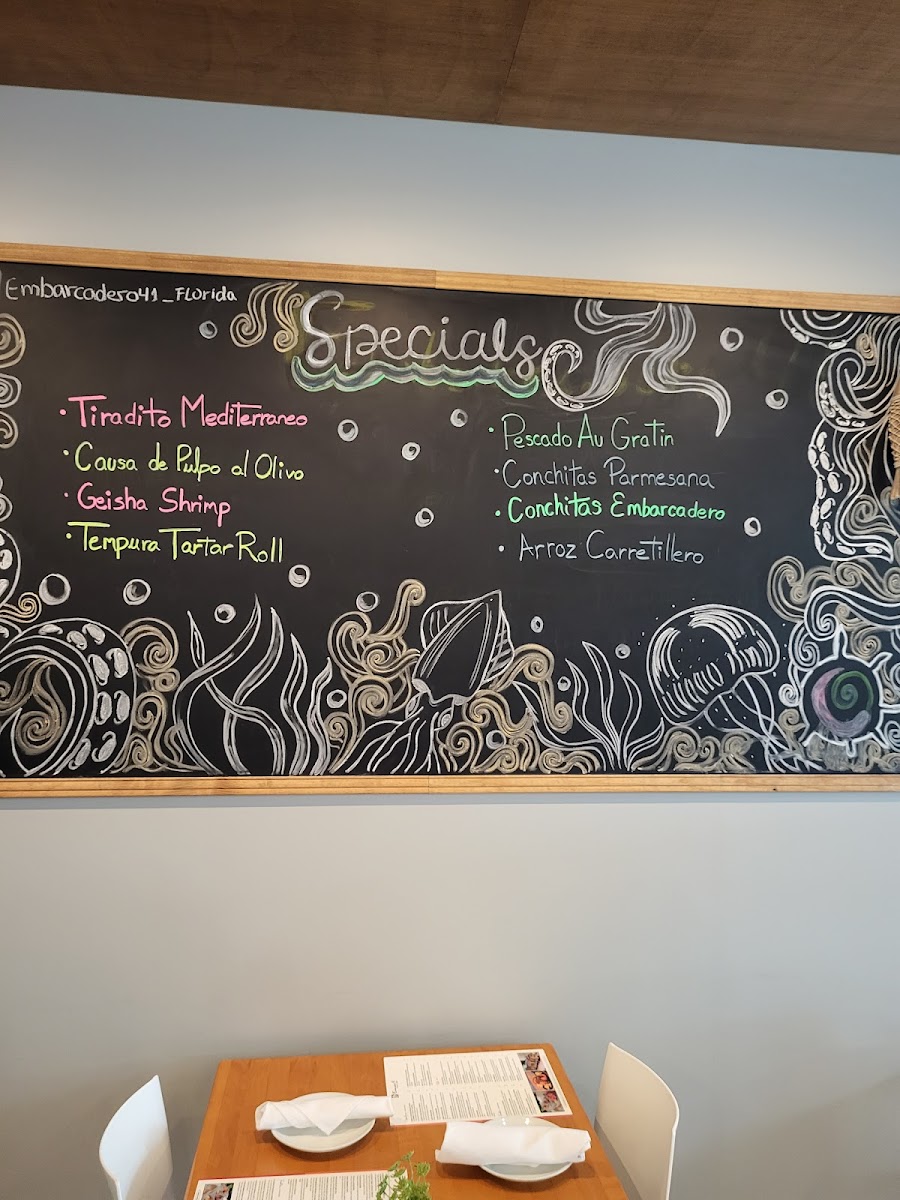 Embarcadero41_Florida
Specials
· Tiradito Mediterraneo
· Causa de Pulpo al Olivo
· Geisha Shrimp
· Tempura Tartar Roll
· Pescado Au Gratin
· Conchitas Parmesana
· Conchitas Embarcadero
· Arroz Carretillero